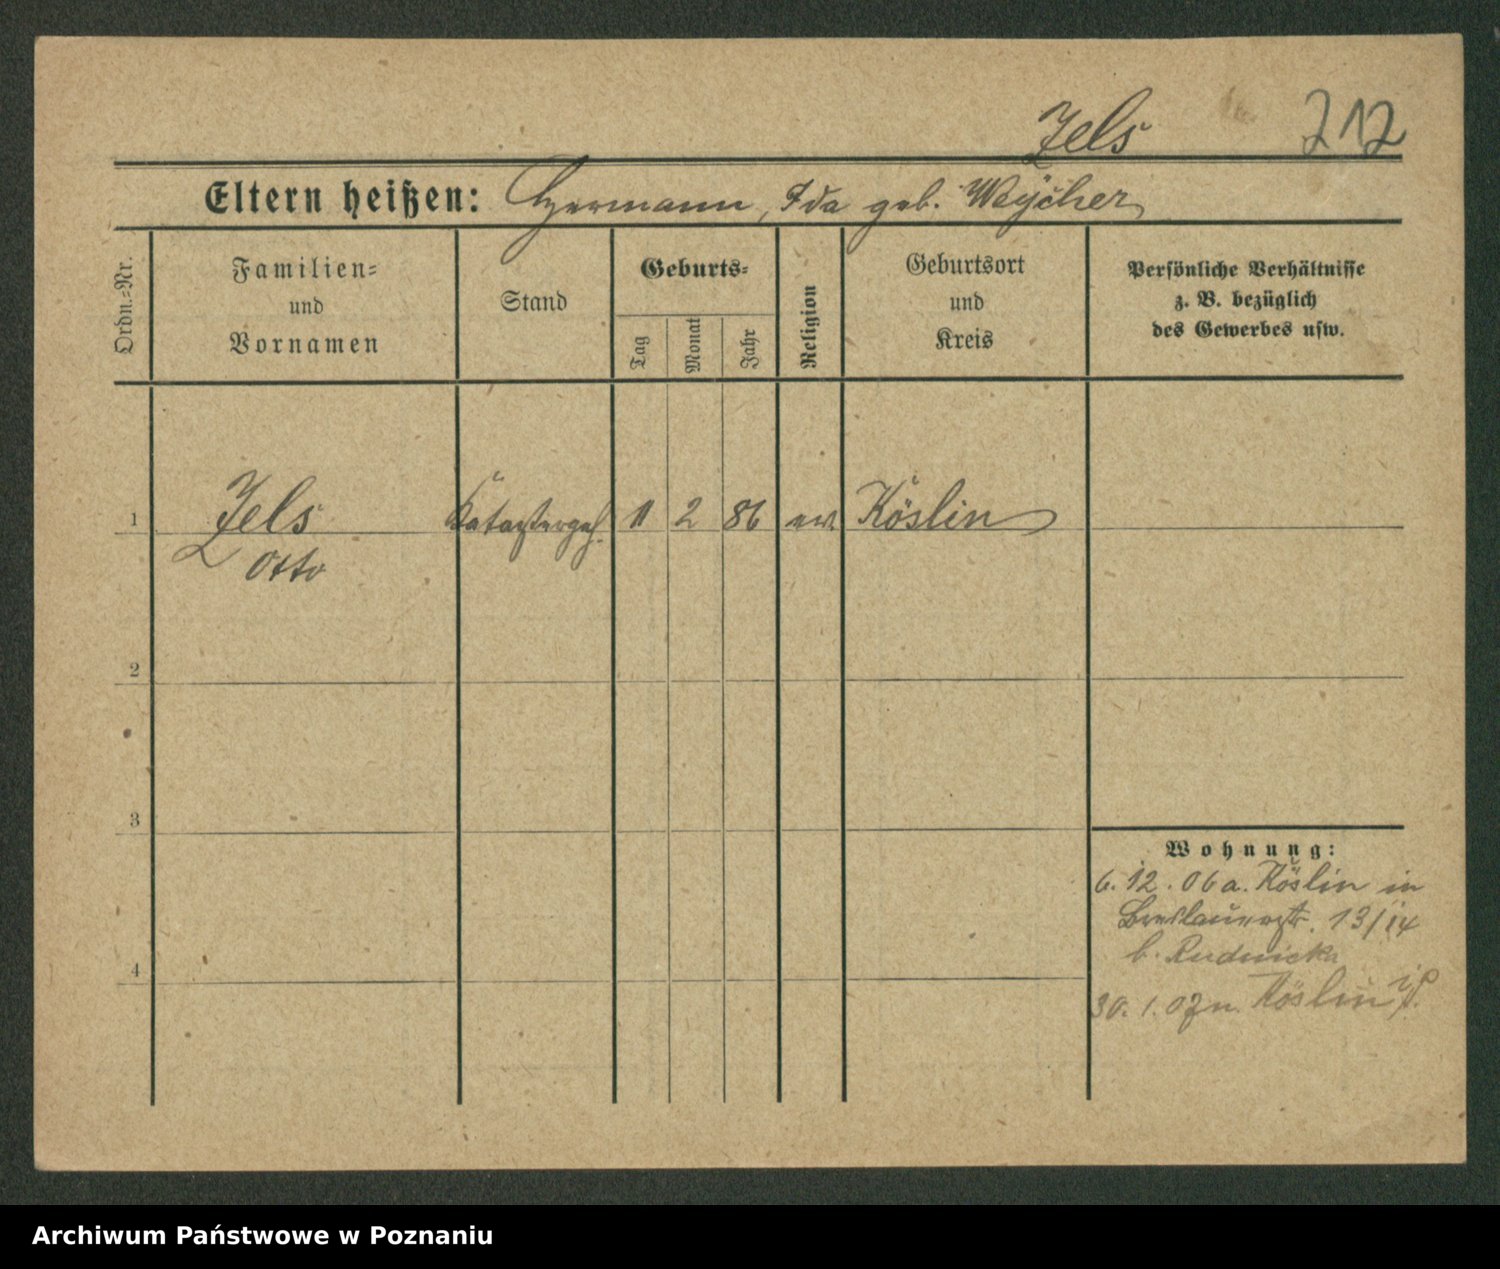 Zels 212
Eltern heißen: Hermann, Ida geb. Weÿcher
Ordn.-Nr.
Familien-
und
Vornamen
Stand
Geburts-
Tag
Monat
Jahr
Religion
Geburtsort
und
Kreis
Persönliche Verhältnisse
z. B. bezüglich
des Gewerbes usw.
1 Zels Katastergeh. 11 2 86 ev. Köslin
Otto
2
3
4
Wohnung:
6. 12. 06 a. Köslin in
Breslauerstr. 13/14
b. Rudnicka
30. 1. 07 n. Köslin i/P.
Archiwum Państwowe w Poznaniu